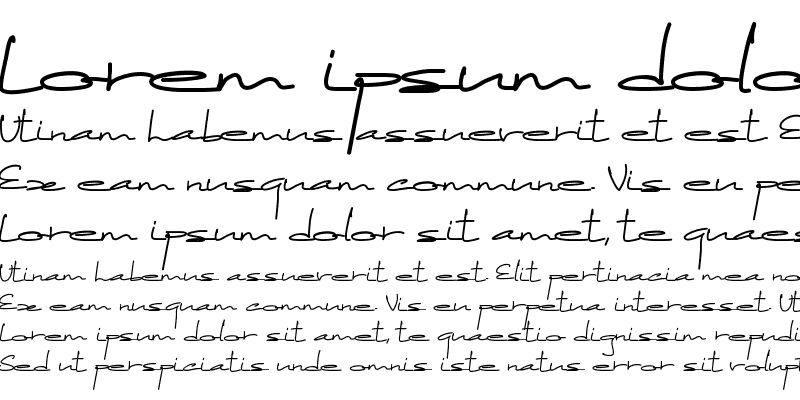 Lorem ipsum dolo
Utinam habemus assueverit et est. E
Ex eam nusquam commune. Vis eu pe
Lorem ipsum dolor sit amet, te quaes
Utinam habemus assueverit et est. Elit pertinacia mea no
Ex eam nusquam commune. Vis eu perpetua interesset. Ut
Lorem ipsum dolor sit amet, te quaestio dignissim repudi
Sed ut perspiciatis unde omnis iste natus error sit volupt